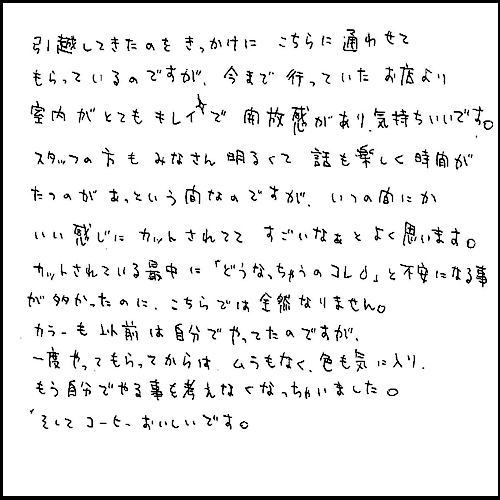 引越してきたのをきっかけに こちらに通わせて
もらっているのですが、今まで行っていたお店より
室内がとてもキレイ☆で 開放感があり、気持ちいいです。
スタッフの方も みなさん明るくて 話も楽しく時間が
たつのが あっという間なのですが、いつの間にか
いい感じに カットされてて すごいなぁと よく思います。
カットされている最中に「どうなっちゃうのコレ♂」と不安になる事
が多かったのに、こちらでは全然なりません。
カラーも以前は自分でやってたのですが、
一度やってもらってからは、ムラもなく、色も気に入り、
もう自分でやる事も考えなくなっちゃいました。
そして コーヒー おいしいです。